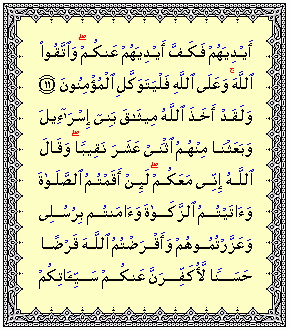 أَيۡدِيَهُمۡ فَكَفَّ أَيۡدِيَهُمۡ عَنكُمۡۖ وَٱتَّقُواْ
ٱللَّهَۚ وَعَلَى ٱللَّهِ فَلۡيَتَوَكَّلِ ٱلۡمُؤۡمِنُونَ ١١
وَلَقَدۡ أَخَذَ ٱللَّهُ مِيثَٰقَ بَنِيٓ إِسۡرَٰٓءِيلَ
وَبَعَثۡنَا مِنۡهُمُ ٱثۡنَيۡ عَشَرَ نَقِيبٗاۖ وَقَالَ
ٱللَّهُ إِنِّي مَعَكُمۡۖ لَئِنۡ أَقَمۡتُمُ ٱلصَّلَوٰةَ
وَءَاتَيۡتُمُ ٱلزَّكَوٰةَ وَءَامَنتُم بِرُسُلِي
وَعَزَّرۡتُمُوهُمۡ وَأَقۡرَضۡتُمُ ٱللَّهَ قَرۡضًا
حَسَنٗا لَّأُكَفِّرَنَّ عَنكُمۡ سَيِّـَٔاتِكُمۡ